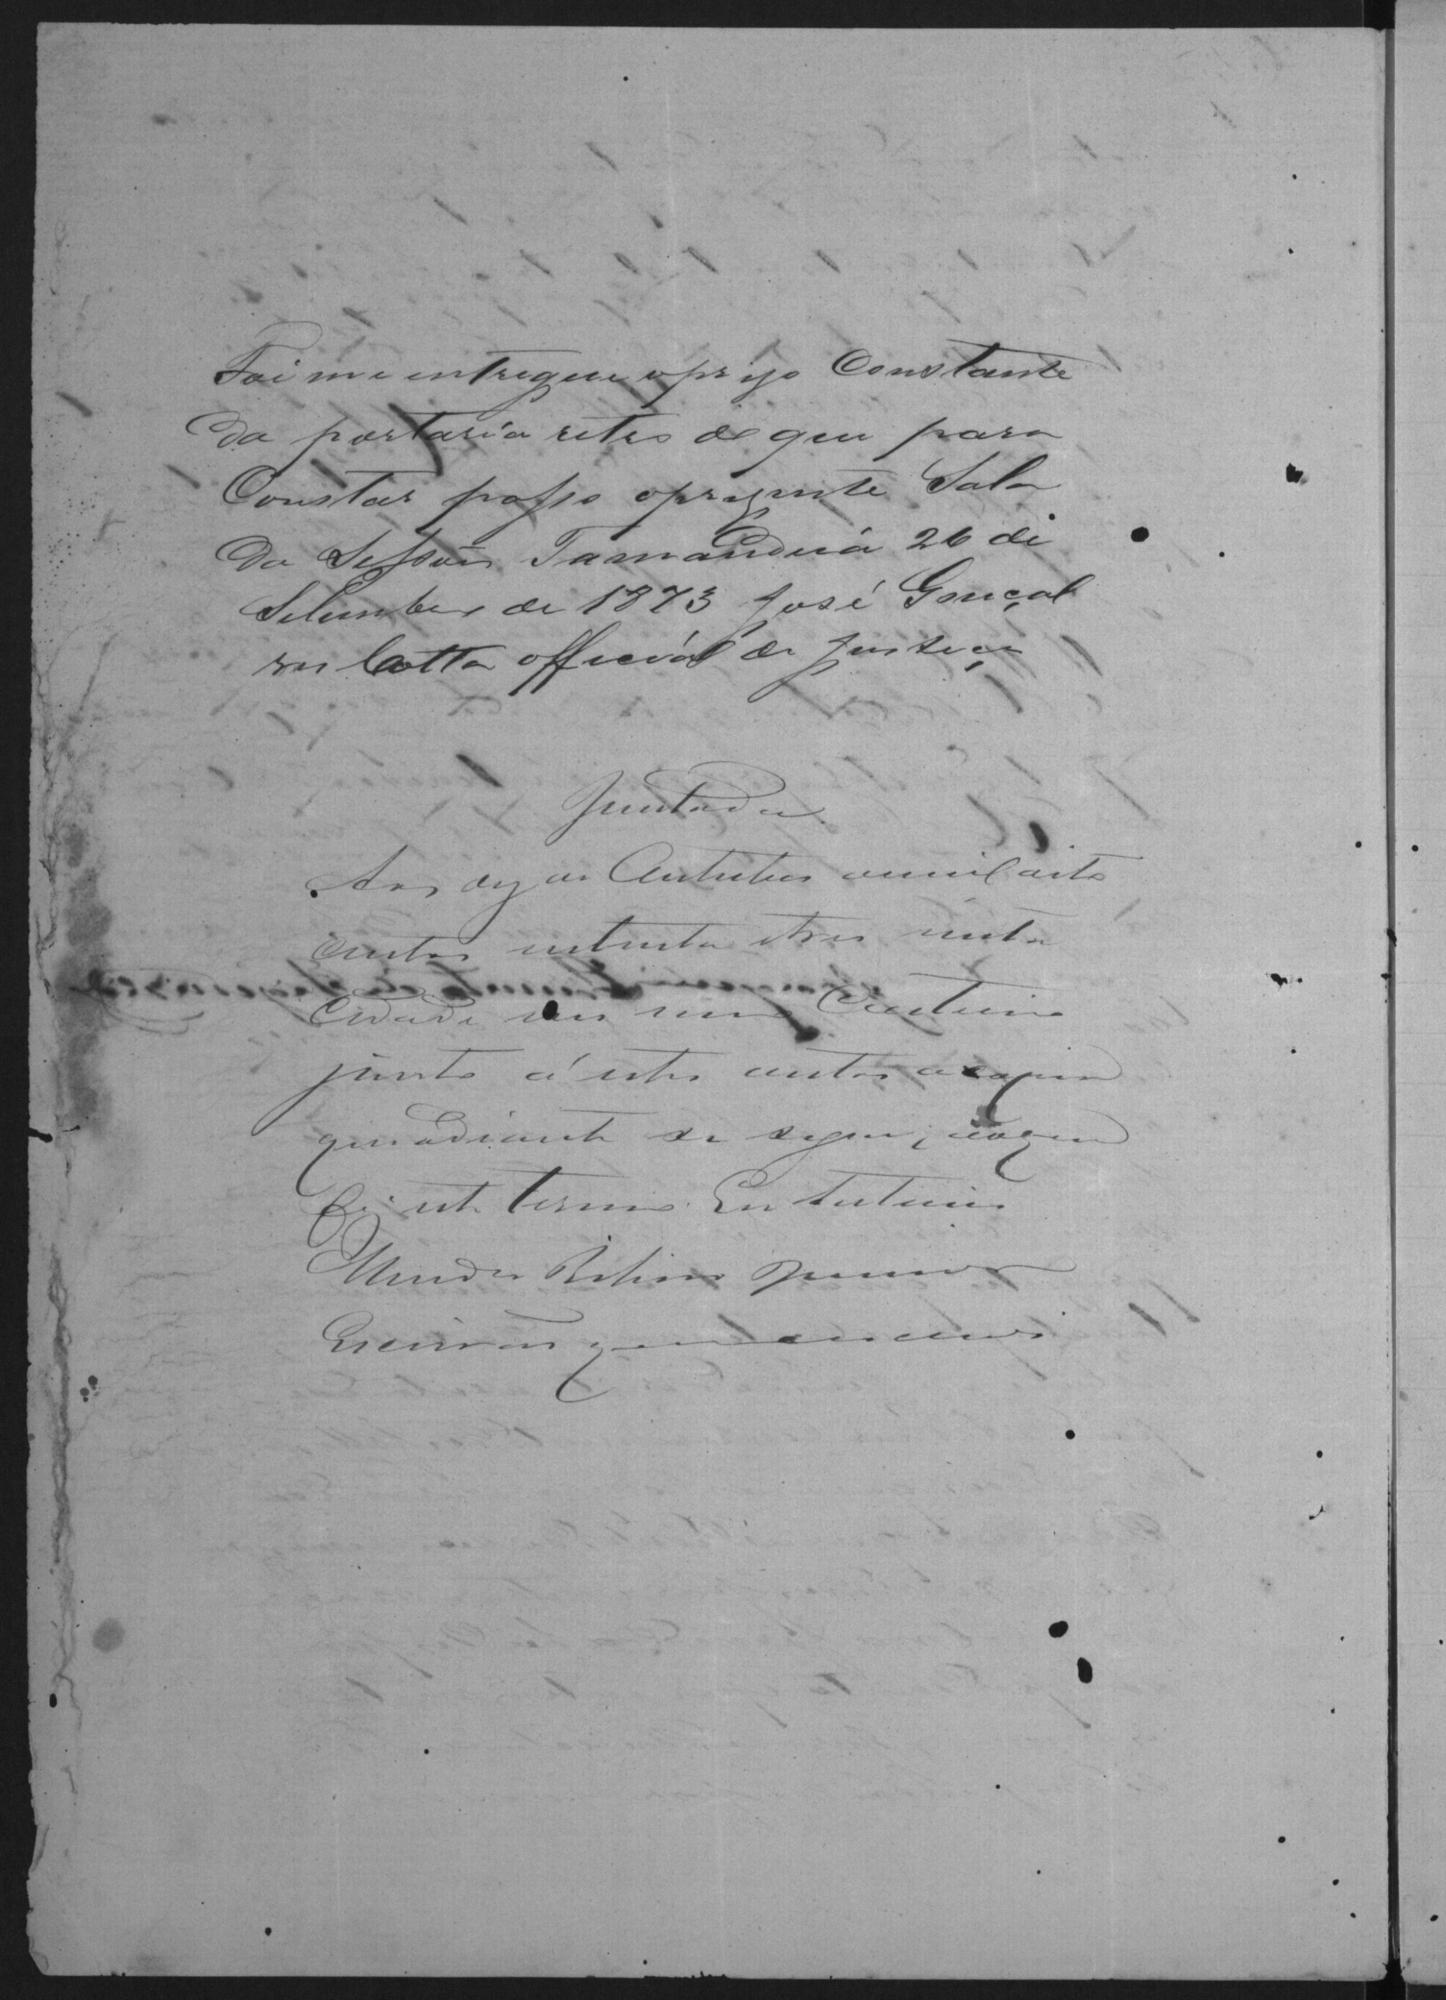 Foi me entregue oprezo Constante
da portaria retro de que para
Constar passo oprezente Sala
Da Sessoens Tamanduá 26 de
Setembro de 1873 José Gonçal
ves Cotta official de Justiça
Juntada
Aos dez de Outubro de mil oito
centos setenta e tres nesta
Cidade em meu Cartorio
junto á estes autos a
que adiante se segue; do que
fiz este termo. Eu Antonio
Mendes Ribeiro Junior
Escrivão que escrevi